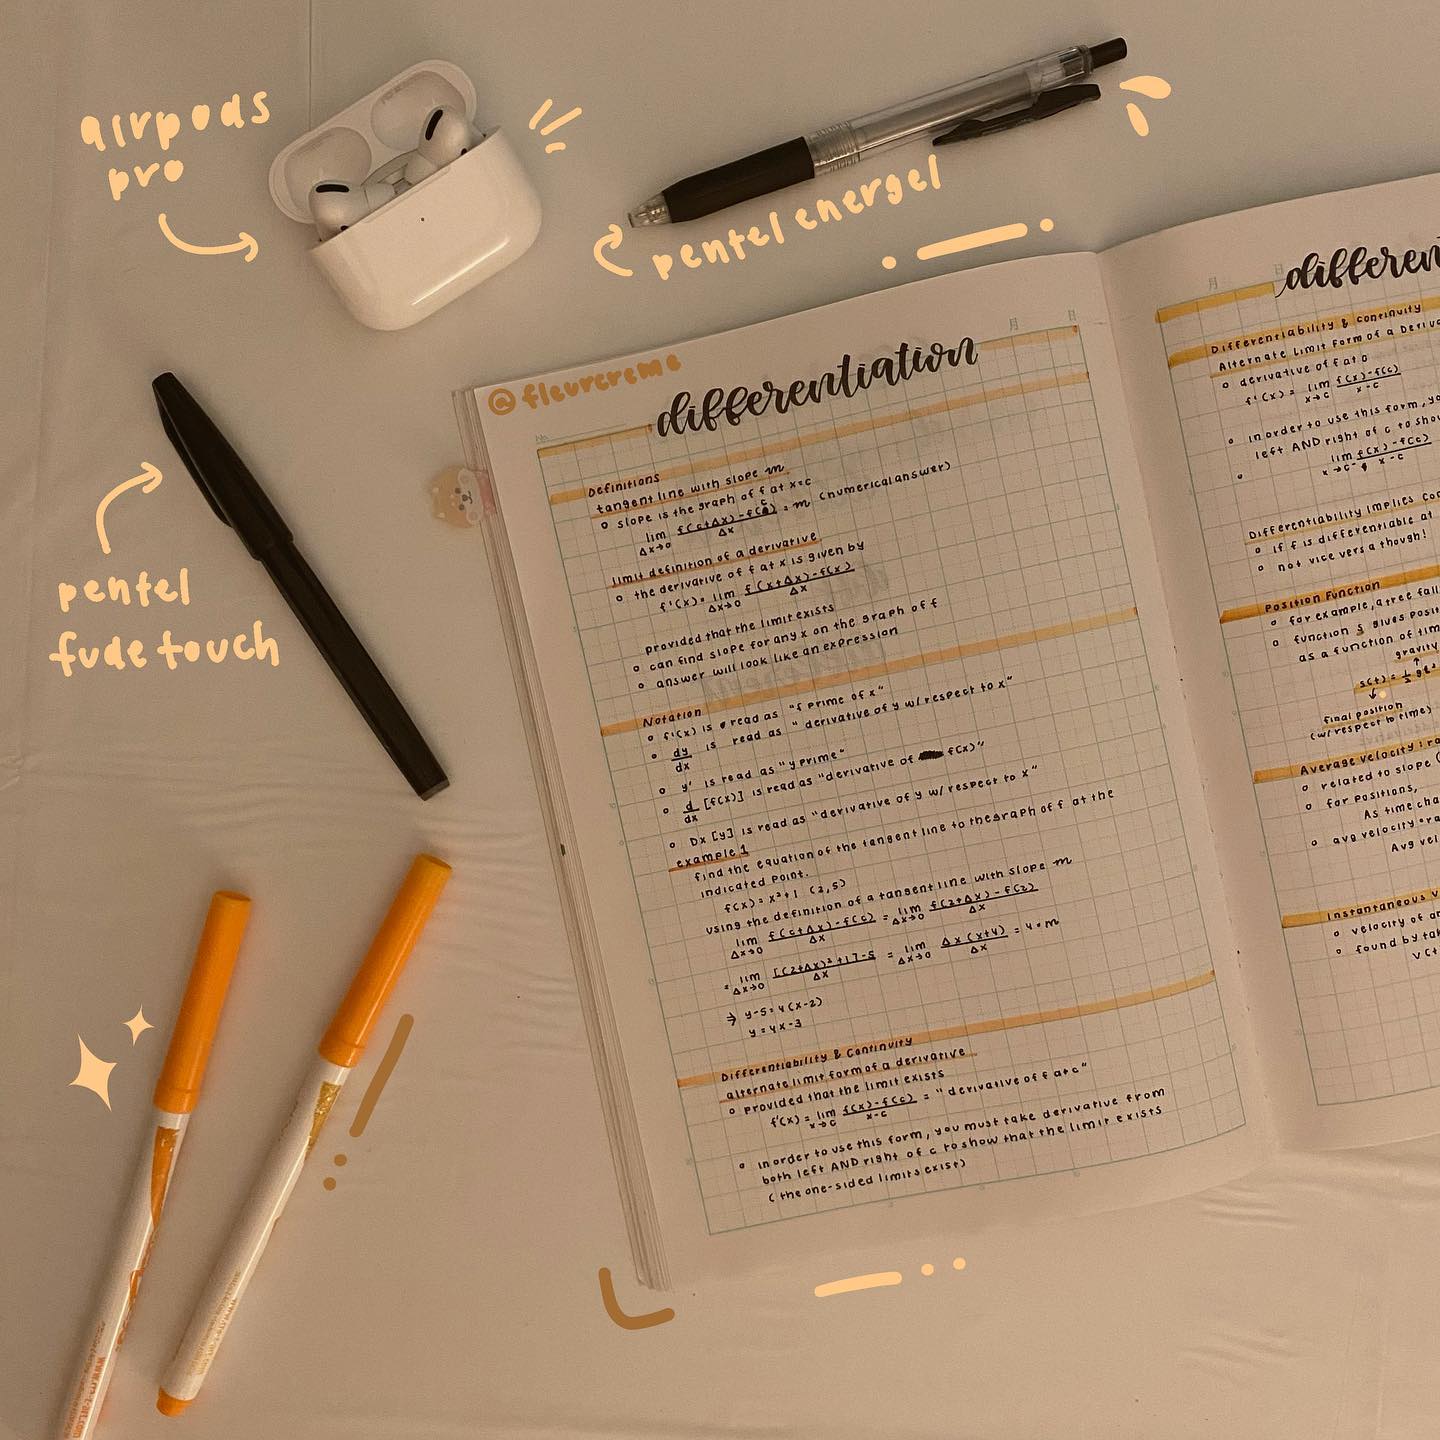 airpods
pro
pentel energel
pentel
fude touch
@fleurcreme
月 日
No.
differentiation
Definitions
tangent line with slope m
slope is the graph of f at x=c
lim f(c+Δx)-f(c) = m (numerical answer)
Δx→0 Δx
limit definition of a derivative
the derivative of f at x is given by
f'(x)= lim f(x+Δx)-f(x)
Δx→0 Δx
provided that the limit exists
can find slope for any x on the graph of f
answer will look like an expression
Notation
f'(x) is read as "f prime of x"
dy is read as "derivative of y w/ respect to x"
dx
y' is read as "y prime"
d [f(x)] is read as "derivative of f(x)"
dx
Dx [y] is read as "derivative of y w/ respect to x"
example 1
find the equation of the tangent line to the graph of f at the
indicated point.
f(x)= x²+1 (2,5)
using the definition of a tangent line with slope m
lim f(c+Δx)-f(c) = lim f(2+Δx)-f(2)
Δx→0 Δx Δx→0 Δx
= lim [(2+Δx)²+1]-5 = lim Δx(x+4) = 4=m
Δx→0 Δx Δx→0 Δx
⇒ y-5=4(x-2)
y=4x-3
Differentiability & Continuity
alternate limit form of a derivative
provided that the limit exists
f'(x)= lim f(x)-f(c) = "derivative of f at c"
x→c x-c
in order to use this form, you must take derivative from
both left AND right of c to show that the limit exists
(the one-sided limits exist)
月 日
differen
Differentiability & continuity
Alternate Limit Form of a Deriva
derivative of f at
f'(x)= lim f(x)-f(c)
x→c x-c
in order to use this form, yo
left AND right of c to show
lim f(x)-f(c)
x→c- x-c
Differentiability Implies Con
if f is differentiable at
not vice versa though!
Position Function
for example, a tree fall
function s gives posit
as a function of tim
gravity
s(t)= 1/2 gt²
final position
(w/ respect to time)
Average velocity: ra
related to slope (
for positions,
As time cha
avg velocity = ra
Avg vel
Instantaneous v
velocity of an
found by tak
v(t